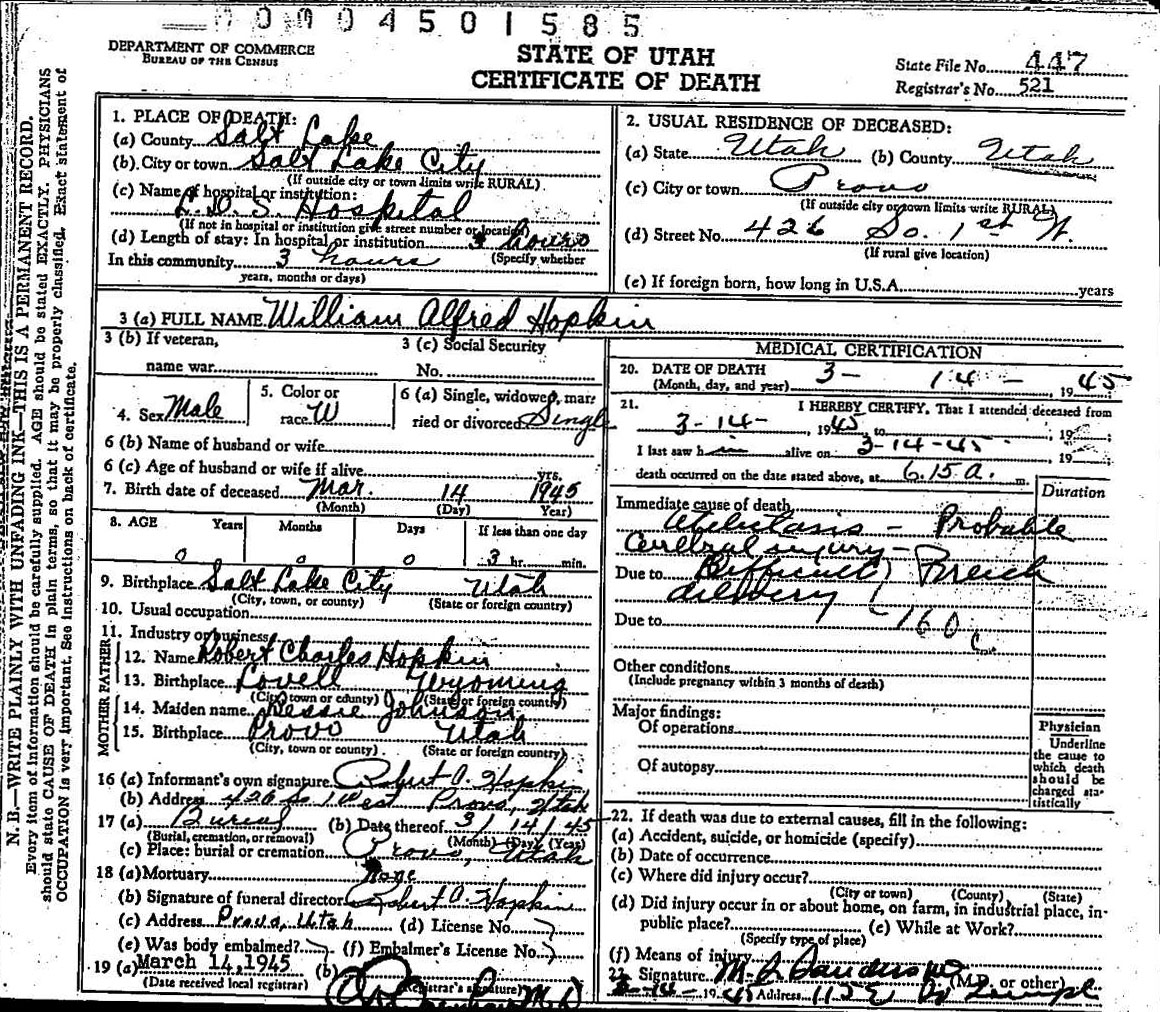 0 0 0 4 5 0 1 5 8 5
DEPARTMENT OF COMMERCE
BUREAU OF THE CENSUS
STATE OF UTAH
CERTIFICATE OF DEATH
State File No. 447
Registrar's No. 521
N. B.—WRITE PLAINLY WITH UNFADING INK—THIS IS A PERMANENT RECORD.
Every item of information should be carefully supplied. AGE should be stated EXACTLY. PHYSICIANS
should state CAUSE OF DEATH in plain terms, so that it may be properly classified. Exact statement of
OCCUPATION is very important. See instructions on back of certificate.
1. PLACE OF DEATH:
(a) County Salt Lake
(b) City or town Salt Lake City
(If outside city or town limits write RURAL)
(c) Name of hospital or institution:
L. D. S. Hospital
(If not in hospital or institution give street number or location)
(d) Length of stay: In hospital or institution 3 hours
In this community 3 hours (Specify whether
years, months or days)
2. USUAL RESIDENCE OF DECEASED:
(a) State Utah (b) County Utah
(c) City or town Provo
(If outside city or town limits write RURAL)
(d) Street No. 426 So. 1st W.
(If rural give location)
(e) If foreign born, how long in U.S.A. years
3 (a) FULL NAME William Alfred Hopkin
3 (b) If veteran,
name war
3 (c) Social Security
No.
4. Sex Male
5. Color or
race W
6 (a) Single, widowed, mar-
ried or divorced Single
6 (b) Name of husband or wife
6 (c) Age of husband or wife if alive yrs.
7. Birth date of deceased Mar. 14 1945
(Month) (Day) Year)
8. AGE Years Months Days If less than one day
0 0 0 3 hr. min.
9. Birthplace Salt Lake City Utah
(City, town, or county) (State or foreign country)
10. Usual occupation
11. Industry or business
FATHER
12. Name Robert Charles Hopkin
13. Birthplace Lovell Wyoming
(City, town or county) (State or foreign country)
MOTHER
14. Maiden name Bessie Johnson
15. Birthplace Provo Utah
(City, town or county) (State or foreign country)
16 (a) Informant's own signature Robert C. Hopkin
(b) Address 426 So 1 West Provo, Utah
17 (a) Burial (b) Date thereof 3/14/45
(Burial, cremation, or removal) (Month) (Day) (Year)
(c) Place: burial or cremation Provo, Utah
18 (a) Mortuary None
(b) Signature of funeral director Robert C. Hopkin
(c) Address Provo, Utah (d) License No.
(e) Was body embalmed? (f) Embalmer's License No.
19 (a) March 14, 1945 (b)
(Date received local registrar) (Registrar's signature)
M.D.
MEDICAL CERTIFICATION
20. DATE OF DEATH
(Month, day, and year) 3- 14- 1945
21. I HEREBY CERTIFY, That I attended deceased from
3-14-, 1945, to , 19
I last saw him alive on 3-14-45, 19
death occurred on the date stated above, at 6.15 a. m.
Duration
Immediate cause of death
Atelectasis - Probable
Cerebral injury -
Due to Difficult Breech
delivery
Due to
160 c
Other conditions
(Include pregnancy within 3 months of death)
Major findings:
Of operations
Of autopsy
Physician
Underline
the cause to
which death
should be
charged sta-
tistically
22. If death was due to external causes, fill in the following:
(a) Accident, suicide, or homicide (specify)
(b) Date of occurrence
(c) Where did injury occur?
(City or town) (County) (State)
(d) Did injury occur in or about home, on farm, in industrial place, in-
public place? (e) While at Work?
(Specify type of place)
(f) Means of injury
23. Signature M. L. Sanders (M.D. or other)
3-14-1945 Address 115 E So Temple